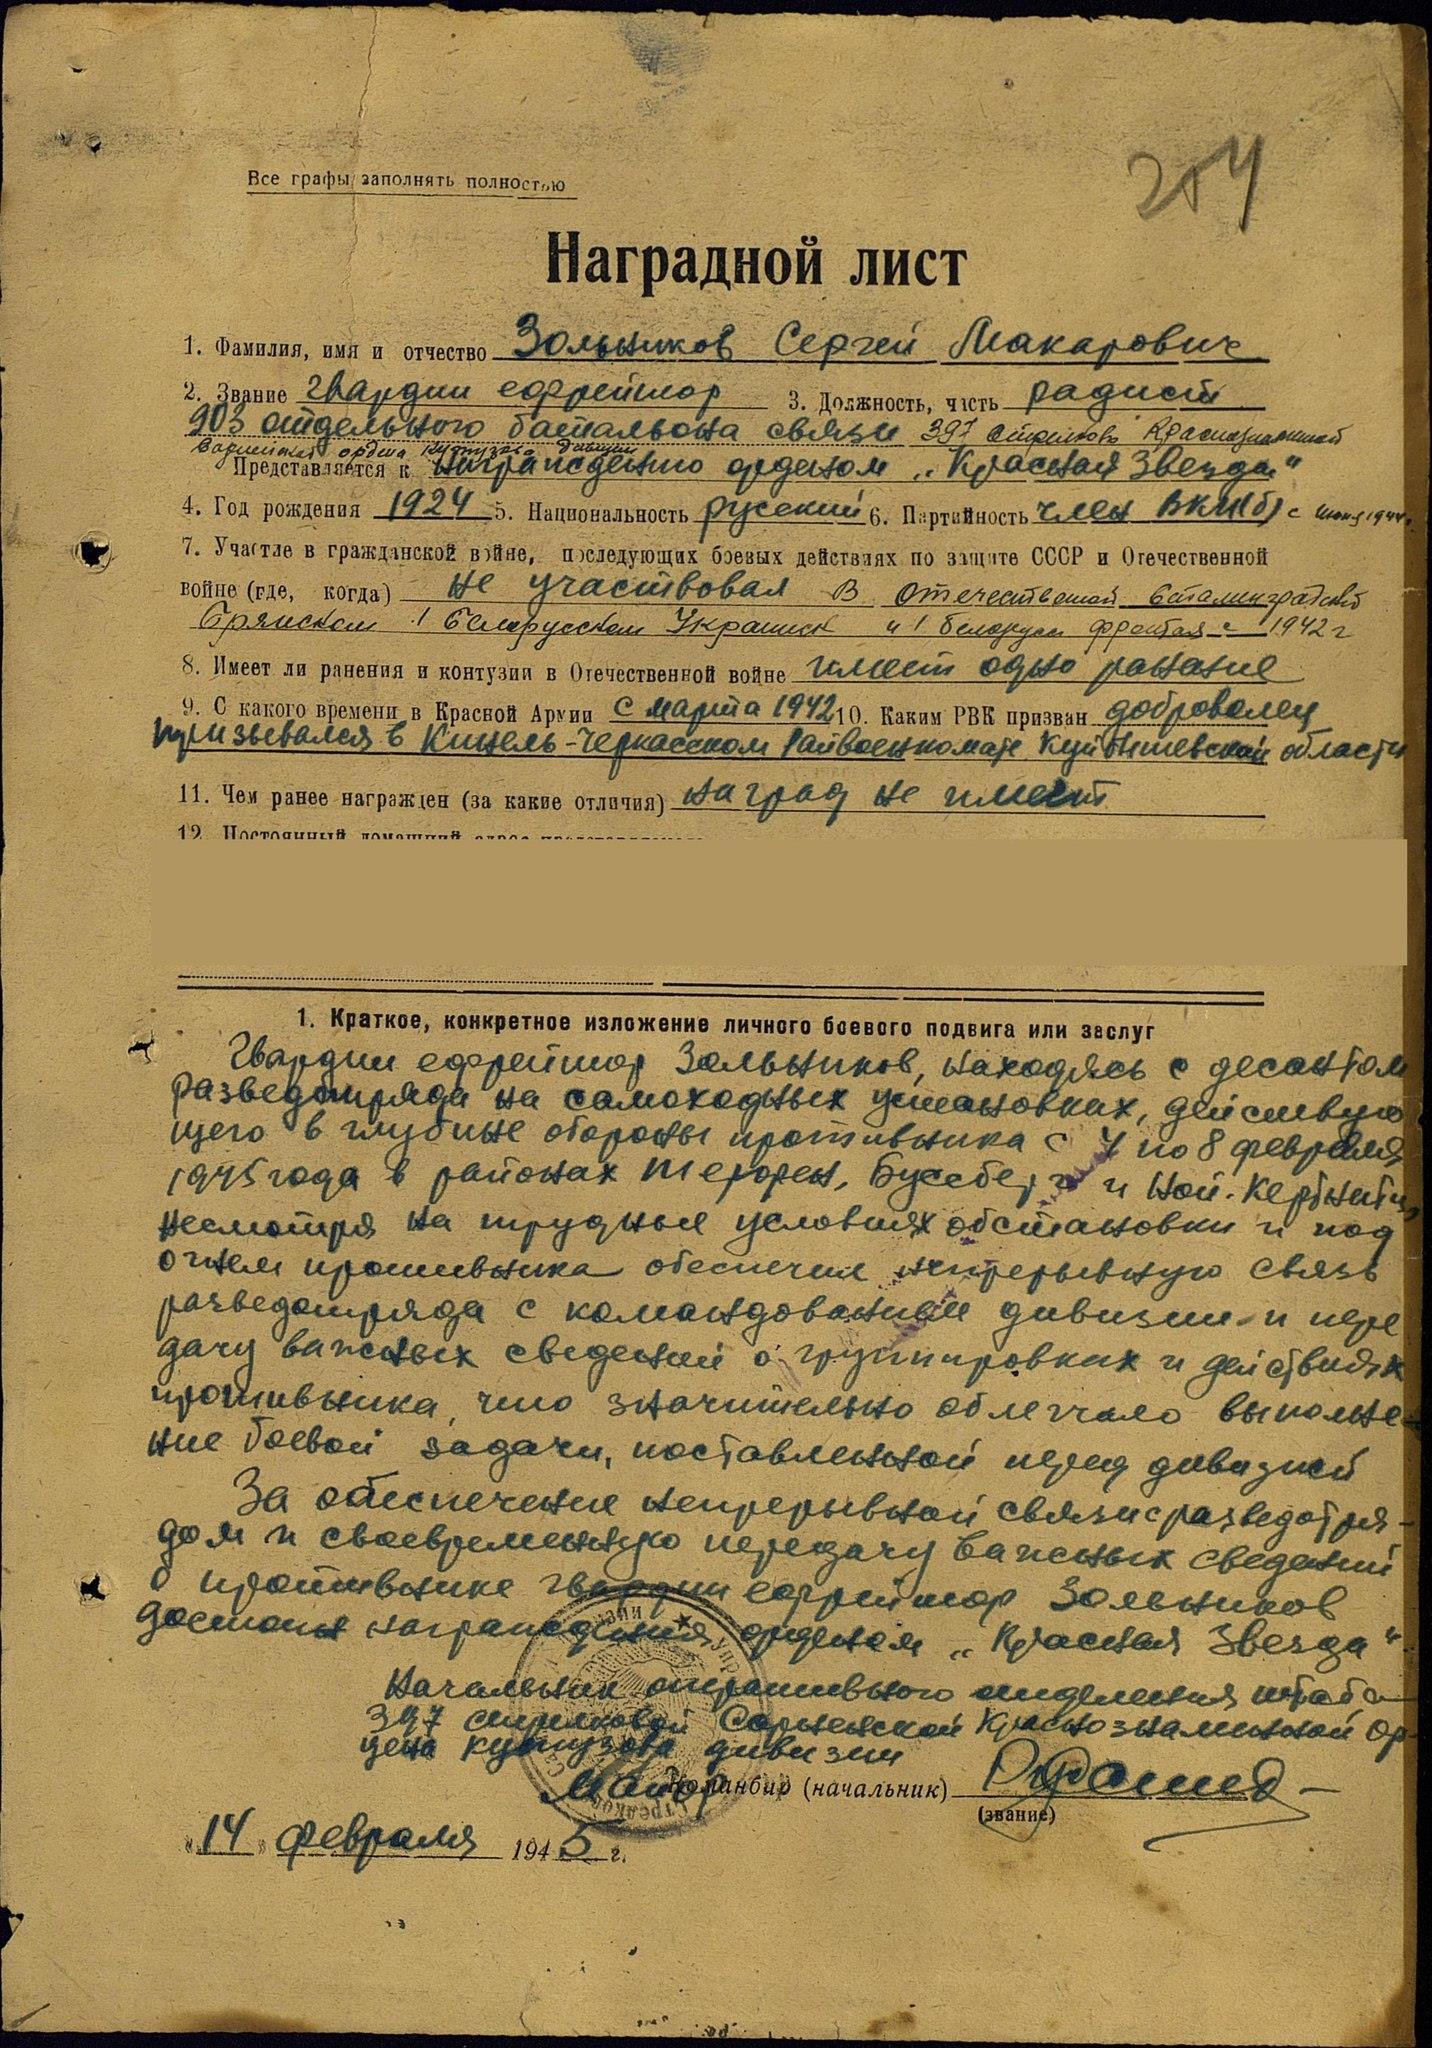 254
Все графы заполнять полностью
Наградной лист
1. Фамилия, имя и отчество Зольников Сергей Макарович
2. Звание гвардии ефрейтор 3. Должность, часть радист
903 отдельного батальона связи 397 стрелково Краснознаменной
ордена Кутузова дивизии
Представляется к награждению орденом „Красная Звезда"
4. Год рождения 1924 5. Национальность русский 6. Партийность член ВКП(б) с 1944 г.
7. Участие в гражданской войне, последующих боевых действиях по защите СССР и Отечественной
войне (где, когда) не участвовал В Отечественной Сталинградском
Брянском 1 Белорусском Украинск и 1 белорусм фронтах с 1942 г
8. Имеет ли ранения и контузии в Отечественной войне имеет одно ранение
9. С какого времени в Красной Армии с марта 1942 10. Каким РВК призван доброволец
призывался в Кинель-Черкасском Райвоенкомате Куйбышевской области
11. Чем ранее награжден (за какие отличия) наград не имеет
12. Постоянный домашний адрес
1. Краткое, конкретное изложение личного боевого подвига или заслуг
Гвардии ефрейтор Зольников, находясь с десантом
разведотряда на самоходных установках, действую
щего в глубине обороны противника с 4 по 8 февраля
1945 года в районах и Ной.
несмотря на трудные условиях обстановки и под
огнем противника обеспечил непрерывную связь
разведотряда с командованием дивизии и пере
дачу важных сведений о группировках и действиях
противника, что значительно облегчало выполне-
ние боевой задачи, поставленной перед дивизией
За обеспечение непрерывной связи с разведотря-
дом и своевременную передачу важных сведений
о противнике гвардии ефрейтор Зольников
достоин награждения орденом „Красная Звезда"
Начальник оперативного отделения штаба
397 стрелковой Сарненской Краснознаменной ор-
дена Кутузова дивизии
Майор Командир (начальник)
(звание)
„14" февраля 1945 г.